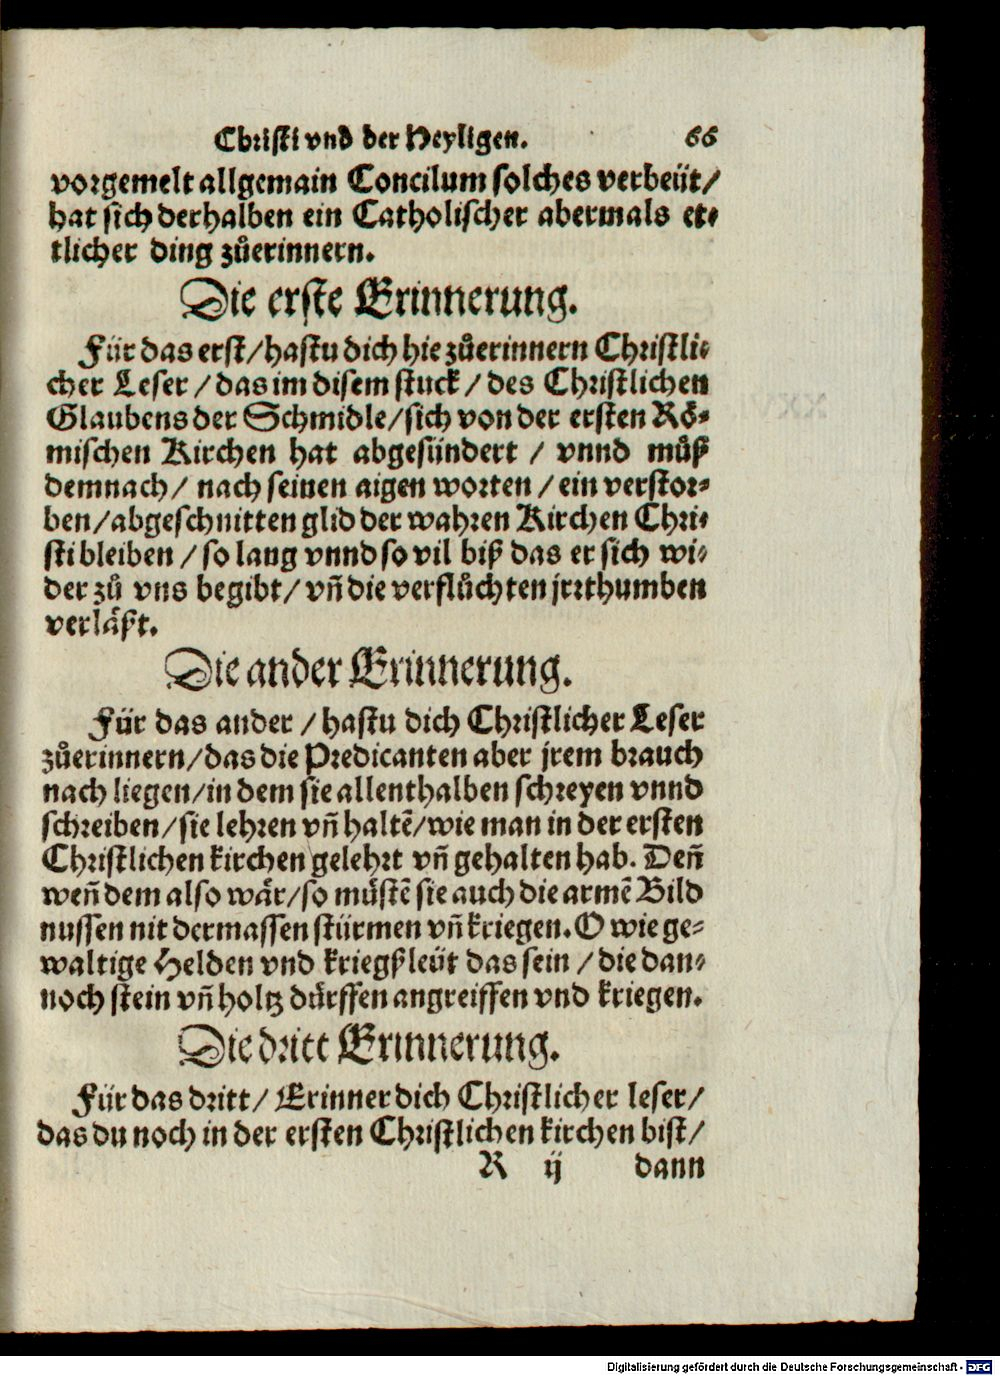 Christi vnd der Heyligen. 66
vorgemelt allgemain Concilum solches verbeüt/
hat sich derhalben ein Catholischer abermals et⸗
tlicher ding zůerinnern.
Die erste Erinnerung.
Für das erst/hastu dich hie zůerinnern Christli⸗
cher Leser/das im disem stuck/des Christlichen
Glaubens der Schmidle/sich von der ersten Rö⸗
mischen Kirchen hat abgesündert/vnnd můß
demnach/nach seinen aigen worten/ein verstor⸗
ben/abgeschnitten glid der wahren Kirchen Chri⸗
sti bleiben/so lang vnnd so vil biß das er sich wi⸗
der zů vns begibt/vñ die verflůchten jrrthumben
verläßt.
Die ander Erinnerung.
Für das ander/hastu dich Christlicher Leser
zůerinnern/das die Predicanten aber jrem brauch
nach liegen/in dem sie allenthalben schreyen vnnd
schreiben/sie lehren vñ haltẽ/wie man in der ersten
Christlichen kirchen gelehrt vñ gehalten hab. Deñ
weñ dem also wär/so müstẽ sie auch die armẽ Bild
nussen nit dermassen stürmen vñ kriegen. O wie ge⸗
waltige Helden vnd kriegßleüt das sein/die dan⸗
noch stein vñ holtz dürffen angreiffen vnd kriegen.
Die dritt Erinnerung.
Für das dritt/Erinner dich Christlicher leser/
das du noch in der ersten Christlichen kirchen bist/
R ij dann
Digitalisierung gefördert durch die Deutsche Forschungsgemeinschaft - DFG